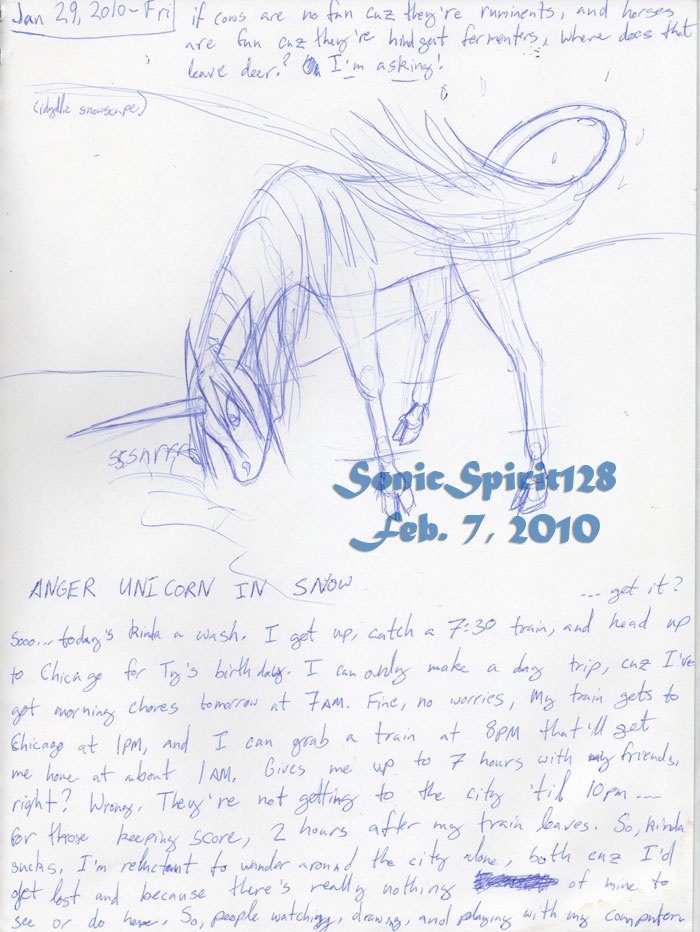 Jan 29, 2010 - Fri
if cows are no fun cuz they're ruminents, and horses
are fun cuz they're hindgut fermenters, where does that
leave deer? I'm asking!
(idyllic snowscape)
sssnrrr
SonicSpirit128
Feb. 7, 2010
ANGER UNICORN IN SNOW
... get it?
sooo... today's kinda a wash. I get up, catch a 7:30 train, and head up
to Chicago for Ty's birthday. I can only make a day trip, cuz I've
got morning chores tomorrow at 7AM. Fine, no worries, My train gets to
Chicago at 1PM, and I can grab a train at 8PM that'll get
me home at about 1AM. Gives me up to 7 hours with my friends,
right? Wrong. They're not getting to the city 'til 10pm ....
for those keeping score, 2 hours after my train leaves. So, kinda
sucks. I'm reluctant to wander around the city alone, both cuz I'd
get lost and because there's really nothing of mine to
see or do here. So, people watching, drawing, and playing with my computer